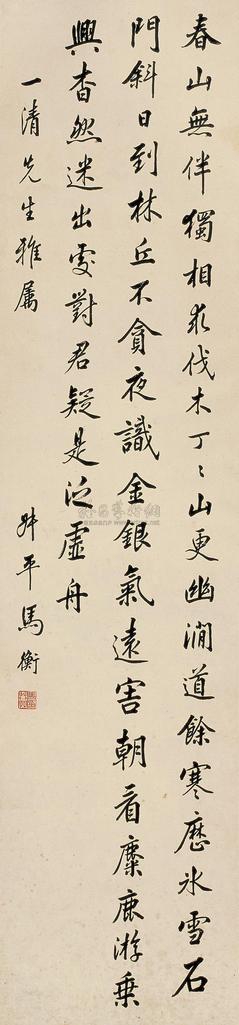 春山無伴獨相求伐木丁〻山更幽澗道餘寒歷冰雪石
門斜日到林丘不貪夜識金銀氣遠害朝看麋鹿游乗
興杳然迷出處對君疑是泛虛舟
一清先生雅属
叔平馬衡